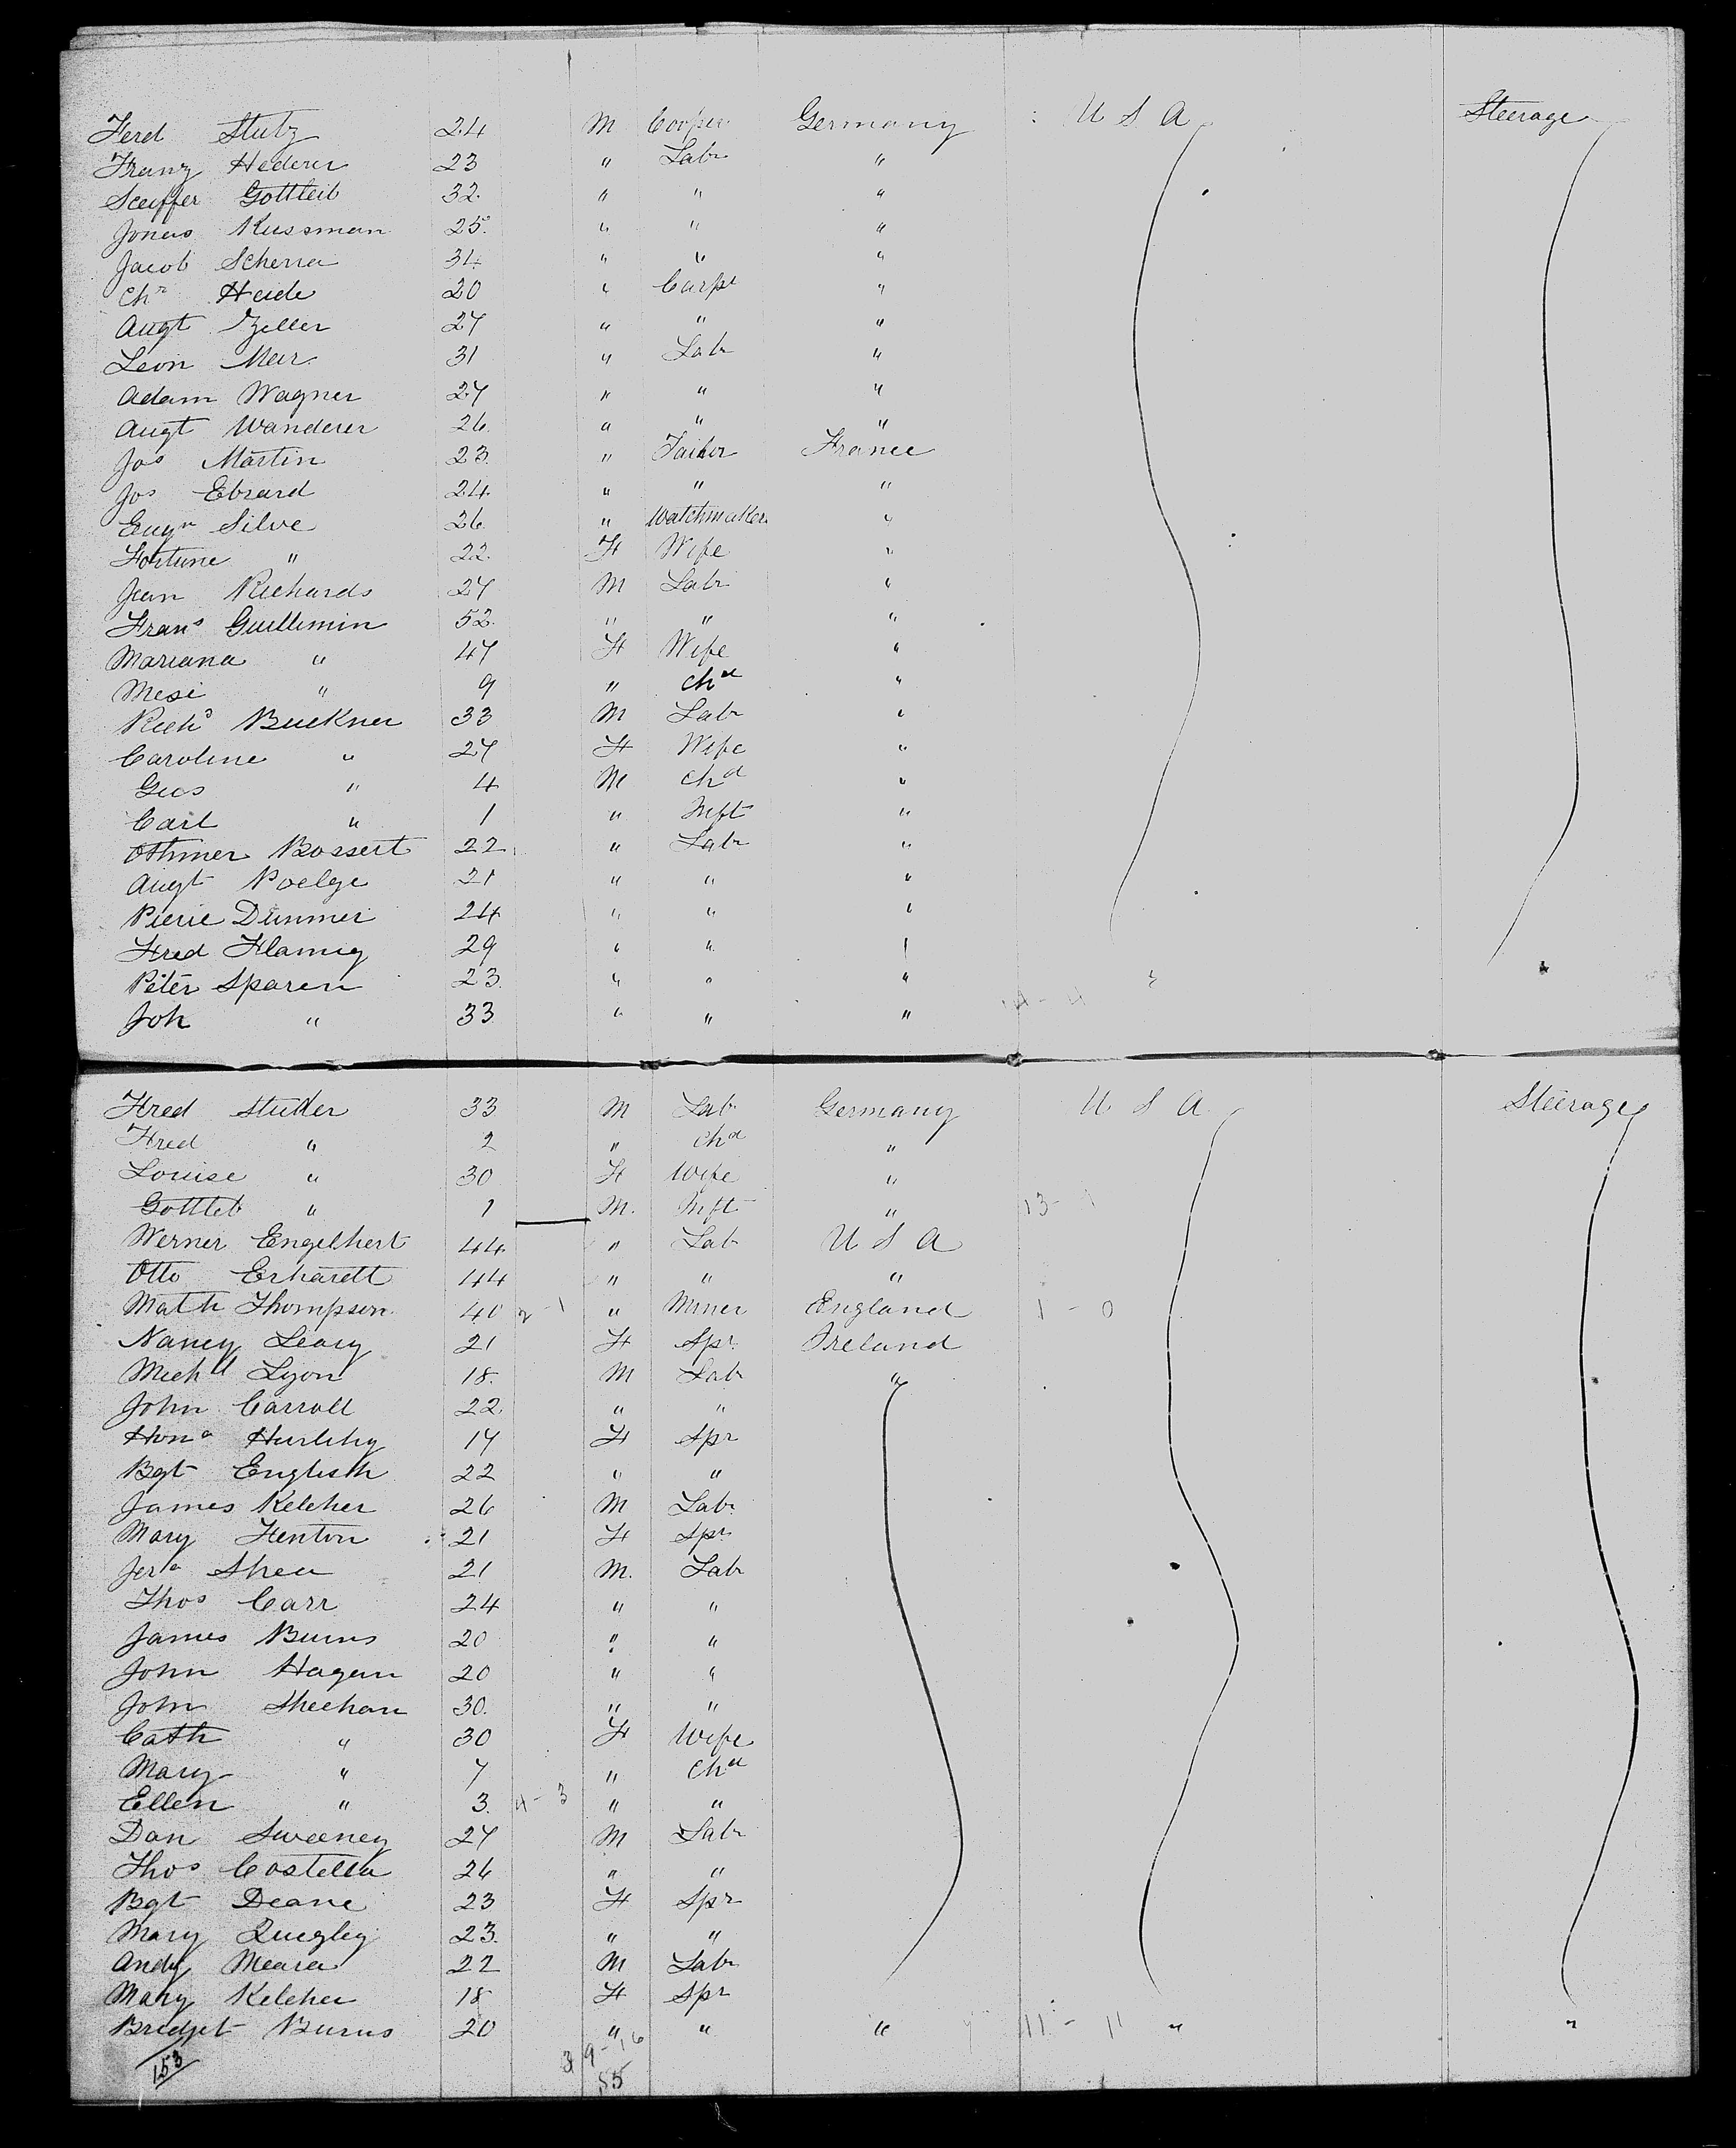 Ferd Stutz 24 M Cooper Germany U S A Steerage
Franz Hederer 23 " Labr "
Seuffer Gottleib 32. " " "
Jonas Kussman 25. " " "
Jacob Scherra 34 " " "
Chr Heide 20 " Carpr "
Augt Zeller 27 " " "
Leon Meir 31 " Labr "
Adam Wagner 27 " " "
Augt Wanderer 26. " " "
Jos Martin 23. " Tailor France
Jos Ebrard 24. " " "
Eugn Silve 26. " Watchmaker "
Fortune " 22. F Wife "
Jean Richards 27 M Labr "
Frans Guillimin 52. " " "
Mariana " 47 F Wife "
Mesi " 9 " Chd "
Richd Buckner 33 M Labr "
Caroline " 27 F Wife "
Gus " 4 M Chd "
Carl " 1 " Inft "
Othmer Bossert 22 " Labr "
Augt Poelge 21 " " "
Pierre Dummer 24 " " "
Fred Flamig 29 " "
Peter Sparen 23. " " " "
Joh " 33 " " "
Fred Studer 33 M Lab Germany U S A Steerage
Fred " 2 " Chd "
Louise " 30 F Wife "
Gottleb " 1 M. Inft " 13-
Werner Engelhert 44 " Lab U S A
Otto Erhardt 44 " " "
Matth Thompson 40 2-1 " Miner England 1-0
Nancy Leary 21 F Spr Ireland
Michl Lyon 18. M Labr "
John Carroll 22. " "
Hona Hurlihy 17 F Spr
Bgt English 22 " "
James Keleher 26 M Labr
Mary Fenton 21 F Spr
Jera Shea 21 M. Labr
Thos Carr 24 " "
James Burns 20 " "
John Hagan 20 " "
John Sheehan 30. " "
Cath " 30 F Wife
Mary " 7 " Chd
Ellen " 3. 4-3 " "
Dan Sweeney 27 M Labr
Thos Costella 26 " "
Bgt Deane 23 F Spr
Mary Quegley 23. " "
Andy Meara 22 M Labr
Mary Keleher 18 F Spr
Bridget Burns 20 " " " 11-11 " "
153 39-16
55